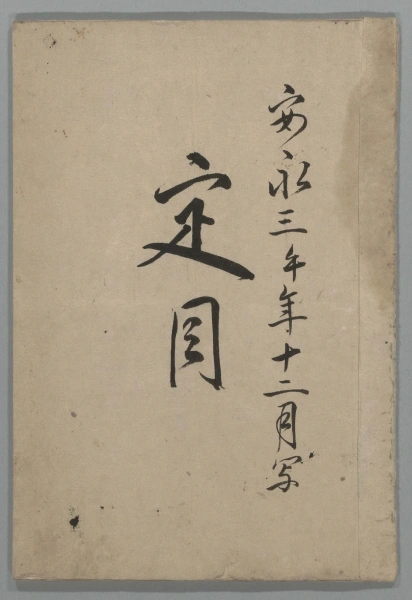 安永三午年十二月写
定目